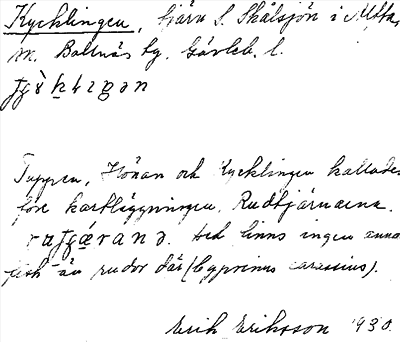 Kycklingen, tjärn S. Skålsjön i Alfta,
m. Bollnäs tg. Gävleb. l.
Tuppen, Hönan och Kycklingen kallades
före kartläggningen Rudtjärnarna.
Det finns ingen anna
fisk än rudor där (Cyprinus carassius).
Erik Eriksson 1930.